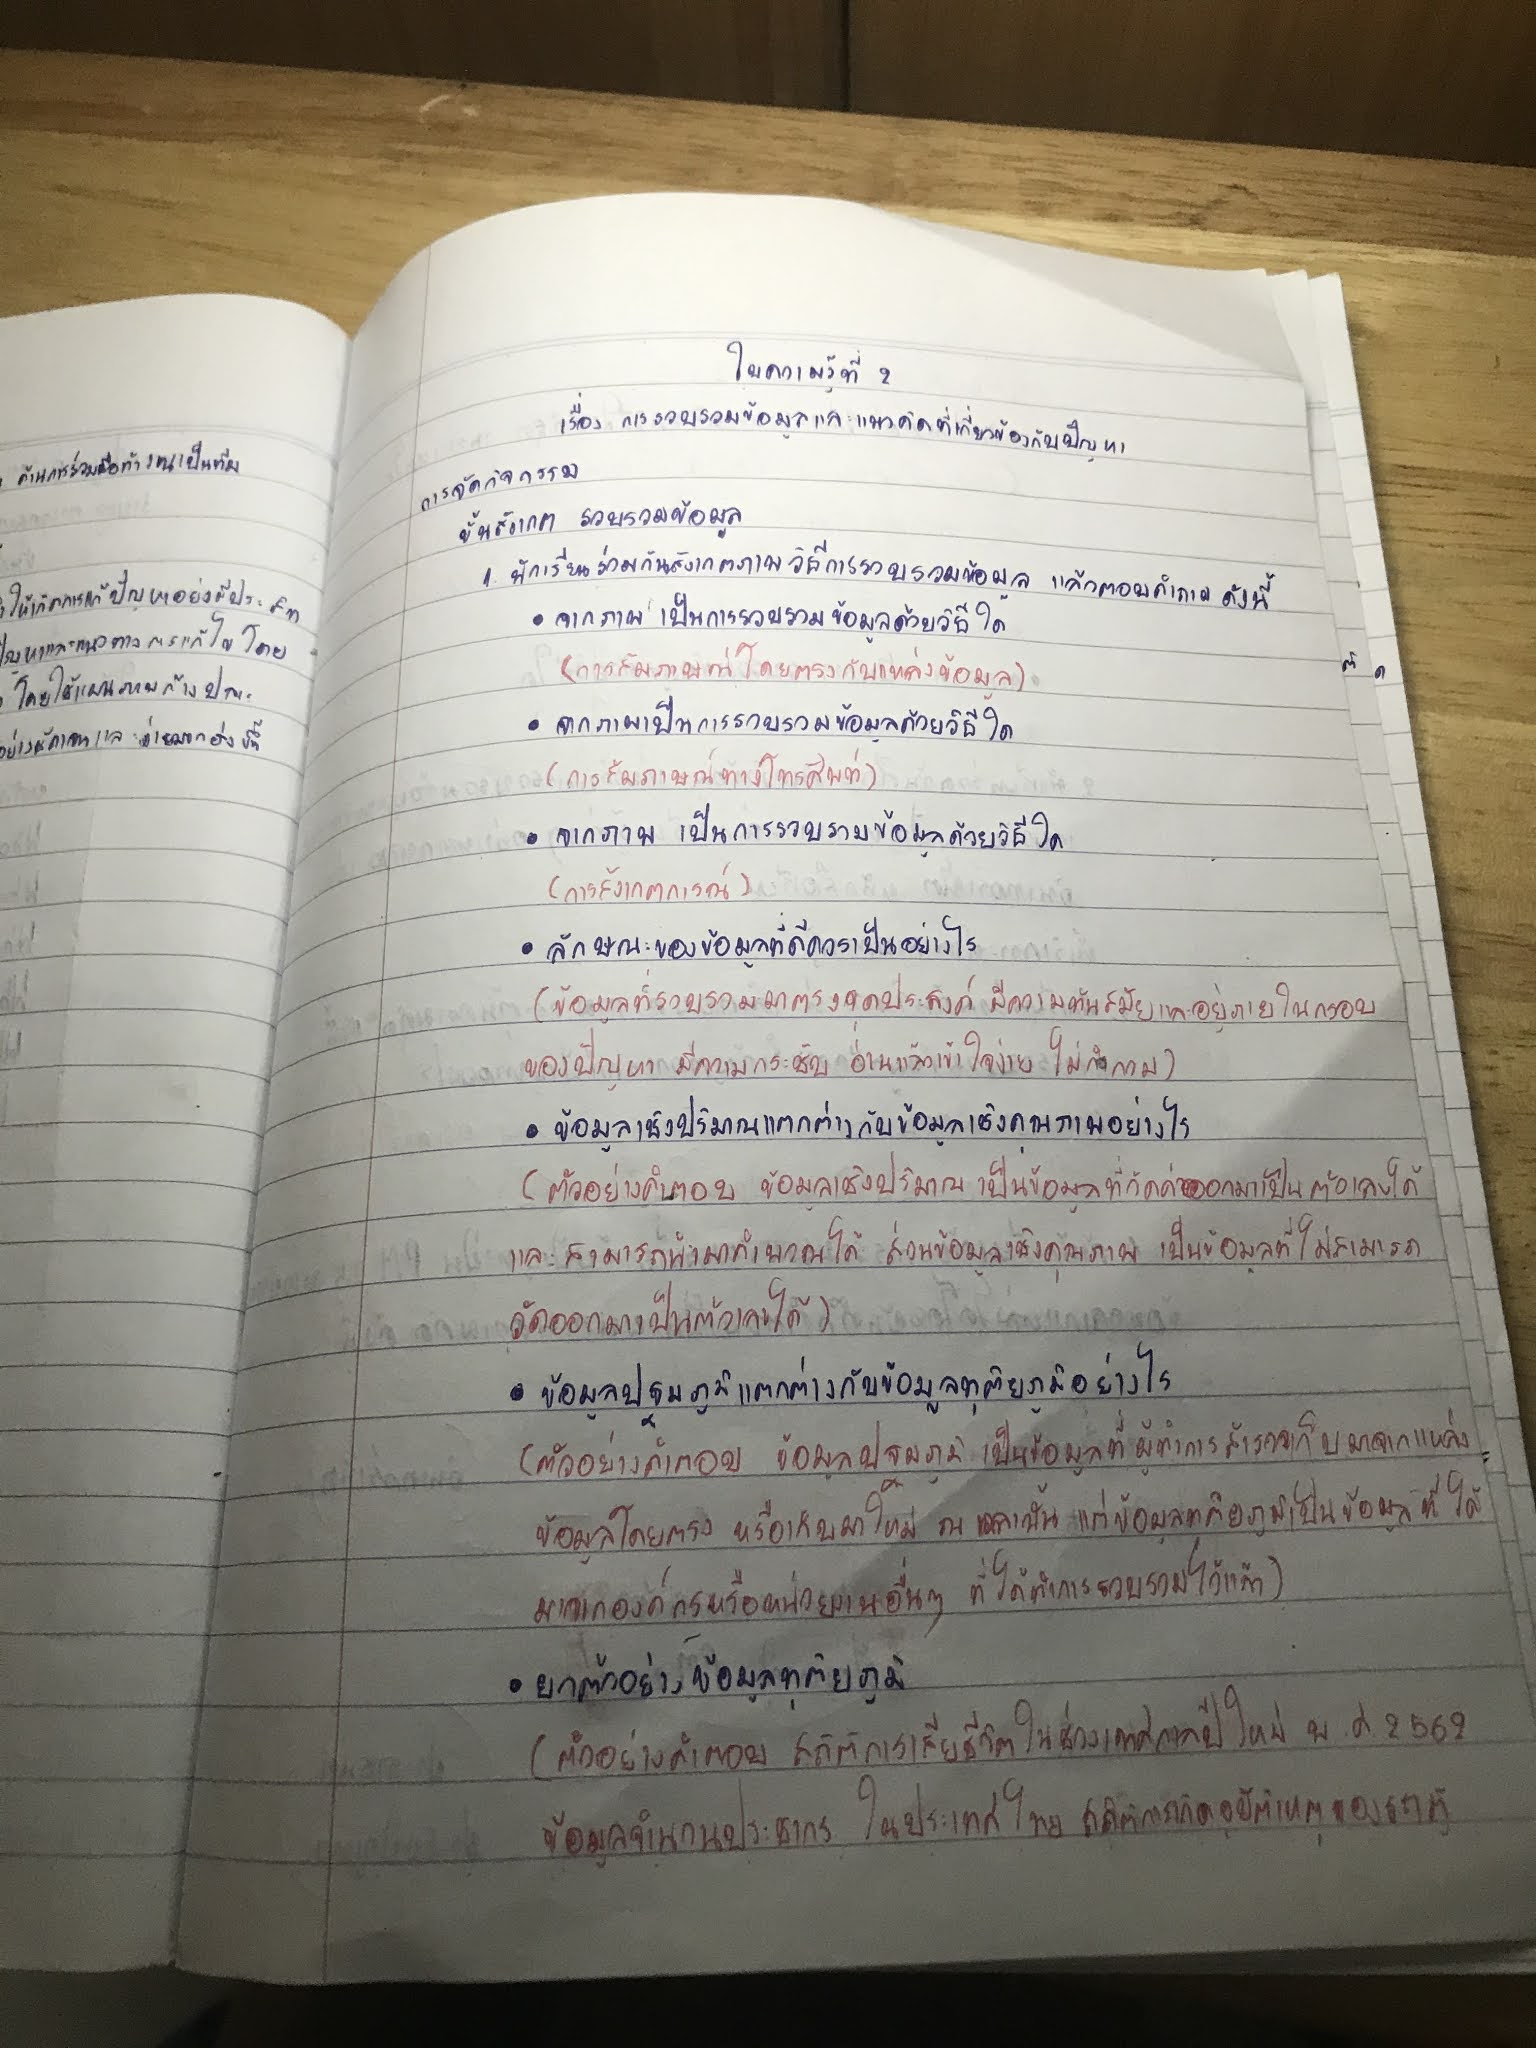 ด้านการร่วมมือทำงานเป็นทีม
ให้เกิดการแก้ปัญหาอย่างมีประสิท
ปัญหาและแนวทางการแก้ไข โดย
โดยใช้แผนภาพก้างปลา
ใบความรู้ที่ 2
เรื่อง การรวบรวมข้อมูลและแนวคิดที่เกี่ยวข้องกับปัญหา
การจัดกิจกรรม
ขั้นสังเกต รวบรวมข้อมูล
1. นักเรียนร่วมกันสังเกตภาพ วิธีการรวบรวมข้อมูล แล้วตอบคำถาม ดังนี้
• จากภาพ เป็นการรวบรวมข้อมูลด้วยวิธีใด
(การสัมภาษณ์โดยตรงกับแหล่งข้อมูล)
• จากภาพเป็นการรวบรวมข้อมูลด้วยวิธีใด
(การสัมภาษณ์ทางโทรศัพท์)
• จากภาพ เป็นการรวบรวมข้อมูลด้วยวิธีใด
(การสังเกตการณ์)
• ลักษณะของข้อมูลที่ดีควรเป็นอย่างไร
(ข้อมูลที่รวบรวมมาตรงจุดประสงค์ มีความทันสมัยและอยู่ภายในกรอบ
ของปัญหา มีความกระชับ อ่านแล้วเข้าใจง่าย ไม่กำกวม)
• ข้อมูลเชิงปริมาณแตกต่างกับข้อมูลเชิงคุณภาพอย่างไร
(ตัวอย่างคำตอบ ข้อมูลเชิงปริมาณ เป็นข้อมูลที่วัดค่าออกมาเป็นตัวเลขได้
และสามารถนำมาคำนวณได้ ส่วนข้อมูลเชิงคุณภาพ เป็นข้อมูลที่ไม่สามารถ
วัดออกมาเป็นตัวเลขได้)
• ข้อมูลปฐมภูมิแตกต่างกับข้อมูลทุติยภูมิอย่างไร
(ตัวอย่างคำตอบ ข้อมูลปฐมภูมิ เป็นข้อมูลที่ผู้ทำการสำรวจเก็บมาจากแหล่ง
ข้อมูลโดยตรง หรือเก็บมาใหม่ ณ เวลานั้น แต่ข้อมูลทุติยภูมิเป็นข้อมูลที่ได้
มาจากองค์กรหรือหน่วยงานอื่นๆ ที่ได้ทำการรวบรวมไว้แล้ว)
• ยกตัวอย่างข้อมูลทุติยภูมิ
(ตัวอย่างคำตอบ สถิติการเสียชีวิตในช่วงเทศกาลปีใหม่ พ.ศ. 2562
ข้อมูลจำนวนประชากร ในประเทศไทย สถิติการเกิดอุบัติเหตุของ